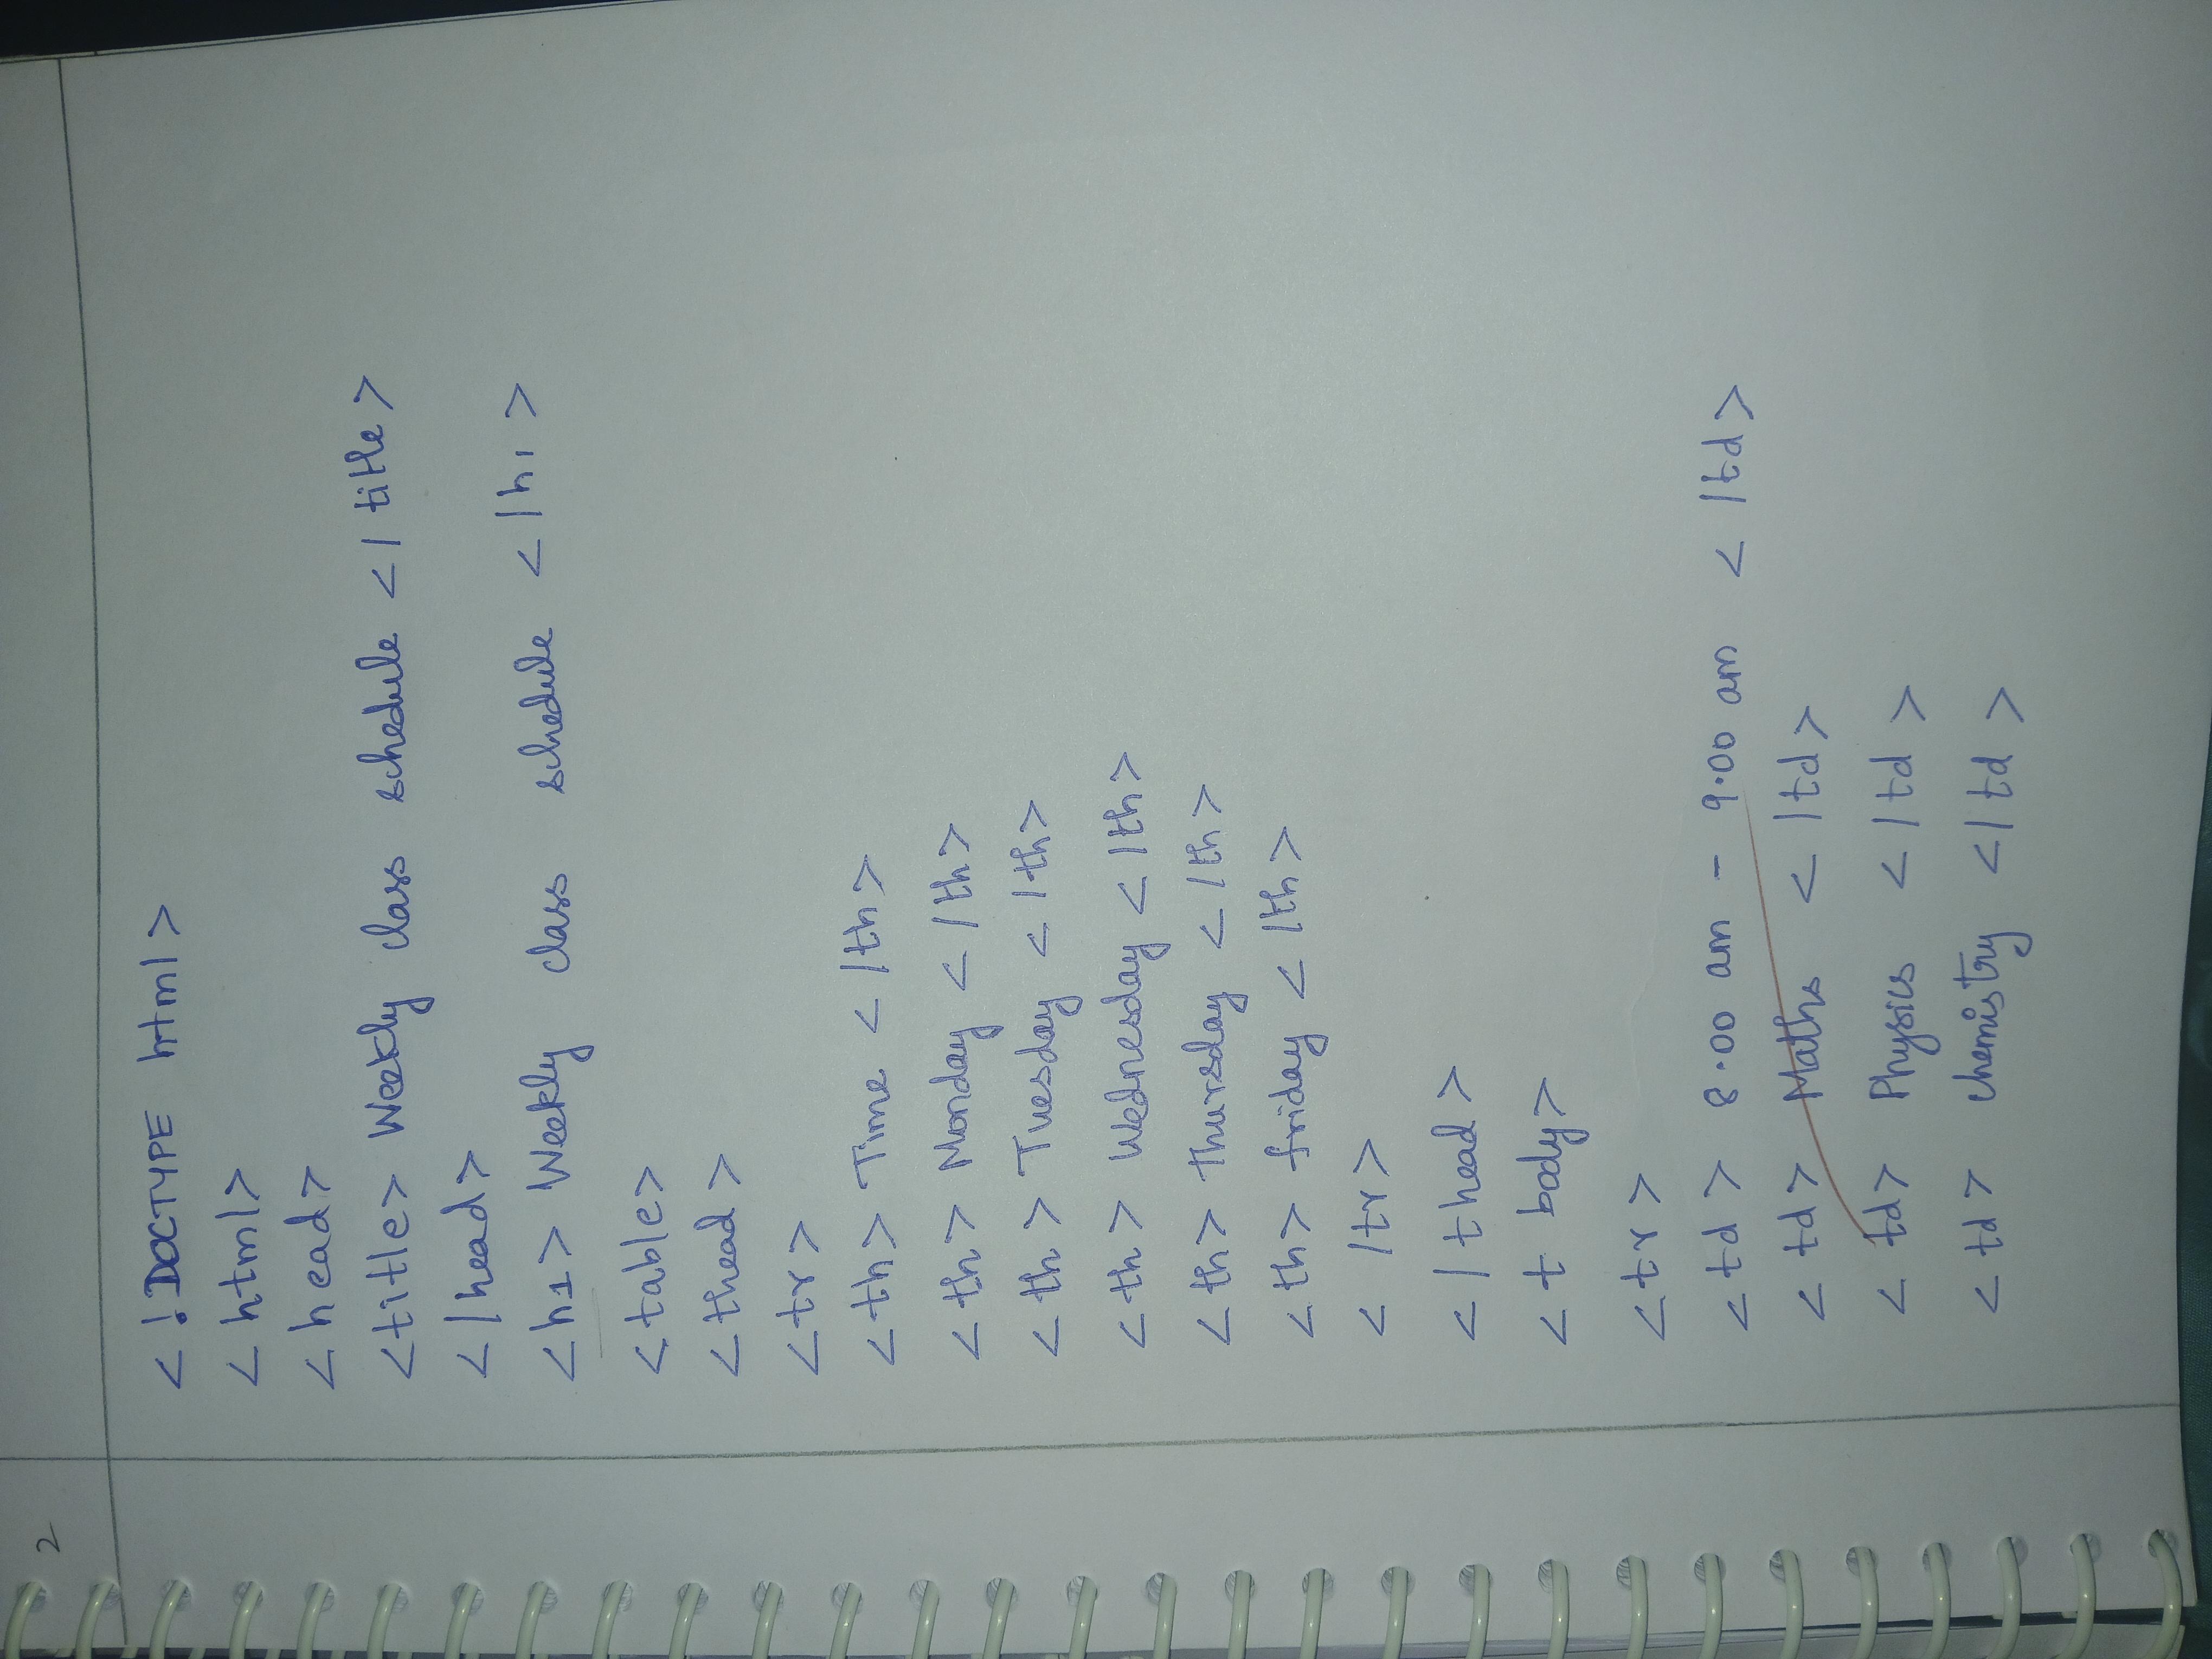 2
<!DOCTYPE html>
<html>
<head>
<title> Weekly class schedule </title>
</head>
<h1> Weekly class schedule </h1>
<table>
<thead>
<tr>
<th> Time </th>
<th> Monday </th>
<th> Tuesday </th>
<th> Wednesday </th>
<th> Thursday </th>
<th> friday </th>
</tr>
</thead>
<t body>
<tr>
<td> 8.00 am - 9.00 am </td>
<td> Maths </td>
<td> Physics </td>
<td> chemistry </td>